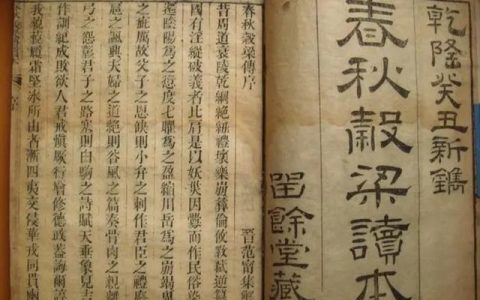 乾隆癸丑新鐫
春秋穀梁讀本
畱餘堂藏
春秋穀梁傳序
晉范甯集
昔周道衰陵乾綱絕紐禮壞樂崩彝倫攸斁
國有淫縱破義者比肩是以妖災因釁而作民俗染
陰陽為之愆度七曜為之盈縮川岳為之崩竭
之疵厲故父子之恩缺則小弁之刺作君臣之禮廢
扈之諷興夫婦之道絕則谷風之篇奏骨肉之親離
弓之怨彰君子之路塞則白駒之詩賦天垂象見吉
作訓紀成敗欲人君戒慎厥行增修德政蓋誨爾諄
我藐藐履霜堅冰所由者漸四夷交侵華戎同貫幽